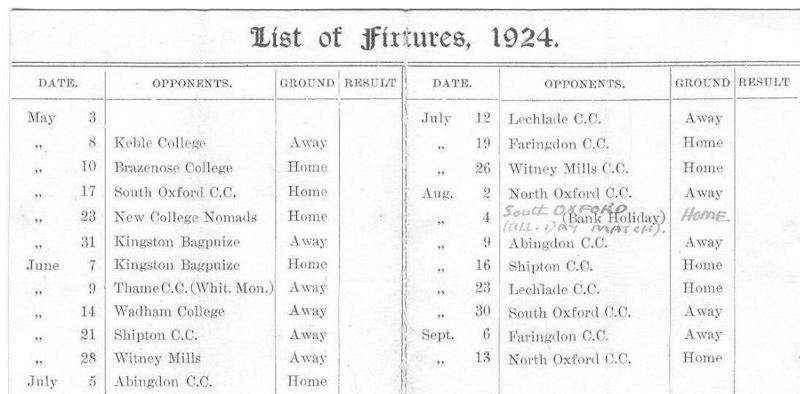 List of Fixtures, 1924.
DATE. OPPONENTS. GROUND RESULT
May 3
„ 8 Keble College Away
„ 10 Brazenose College Home
„ 17 South Oxford C.C. Home
„ 23 New College Nomads Home
„ 31 Kingston Bagpuize Away
June 7 Kingston Bagpuize Home
„ 9 Thame C.C. (Whit. Mon.) Away
„ 14 Wadham College Away
„ 21 Shipton C.C. Away
„ 28 Witney Mills Away
July 5 Abingdon C.C. Home
DATE. OPPONENTS. GROUND RESULT
July 12 Lechlade C.C. Away
„ 19 Faringdon C.C. Home
„ 26 Witney Mills C.C. Home
Aug. 2 North Oxford C.C. Away
South OXFORD
„ 4 (Bank Holiday) HOME.
(ALL. DAY MATCH).
„ 9 Abingdon C.C. Away
„ 16 Shipton C.C. Home
„ 23 Lechlade C.C. Home
„ 30 South Oxford C.C. Away
Sept. 6 Faringdon C.C. Away
„ 13 North Oxford C.C. Home